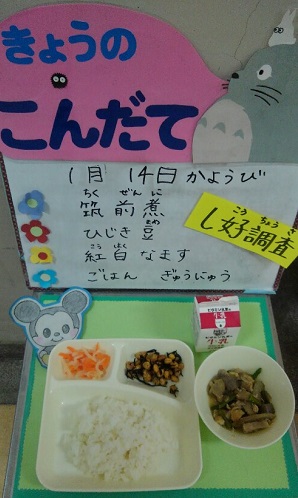 きょうの
こんだて
1月 14日 かようび
ちく ぜん に
筑前煮
ひじき豆
まめ
こう はく
紅白なます
ごはん ぎゅうにゅう
こう ちょう さ
し好調査